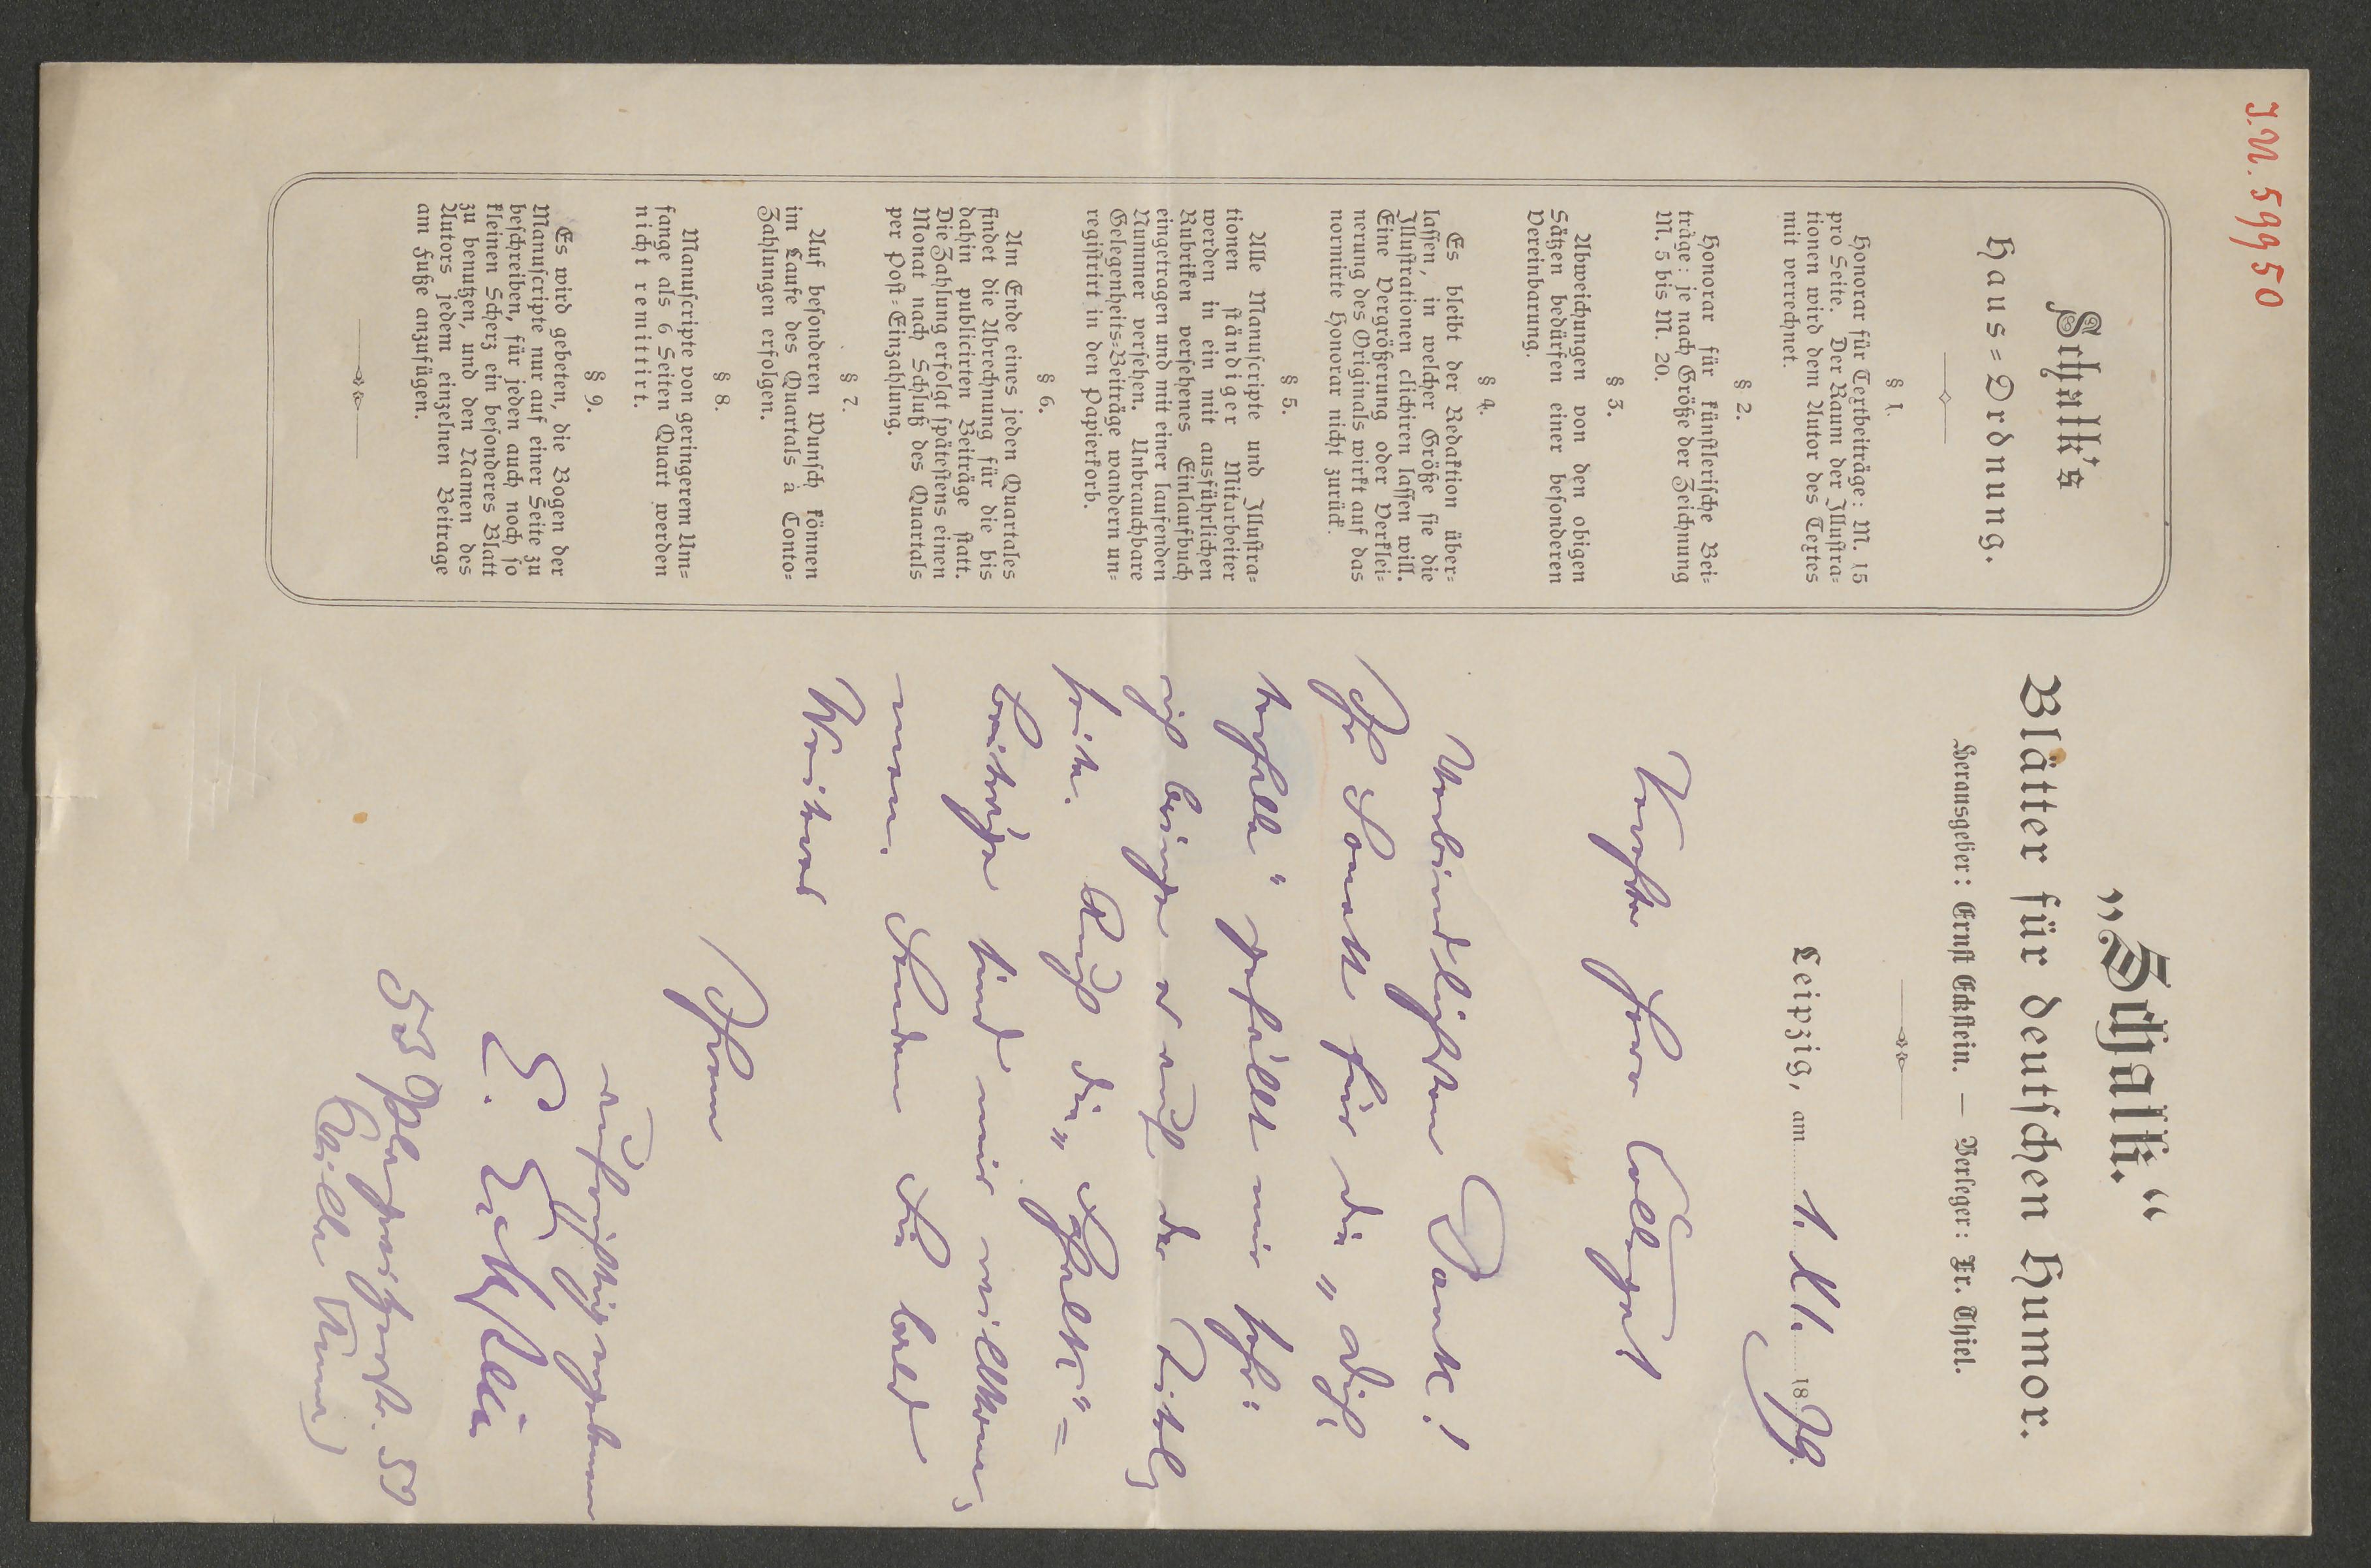 J.N. 59950
Schalk's
Haus=Ordnung.
§ 1.
Honorar für Textbeiträge: M. 15
pro Seite. Der Raum der Illustra=
tionen wird dem Autor des Textes
mit verrechnet.
§ 2.
Honorar für künstlerische Bei=
träge: je nach Größe der Zeichnung
M. 5 bis M. 20.
§ 3.
Abweichungen von den obigen
Sätzen bedürfen einer besonderen
Vereinbarung.
§ 4.
Es bleibt der Redaktion über=
lassen, in welcher Größe sie die
Illustrationen clichiren lassen will.
Eine Vergrößerung oder Verklei=
nerung des Originals wirkt auf das
normirte Honorar nicht zurück.
§ 5.
Alle Manuscripte und Illustra=
tionen ständiger Mitarbeiter
werden in ein mit ausführlichen
Rubriken versehenes Einlaufbuch
eingetragen und mit einer laufenden
Nummer versehen. Unbrauchbare
Gelegenheits=Beiträge wandern un=
registrirt in den Papierkorb.
§ 6.
Am Ende eines jeden Quartales
findet die Abrechnung für die bis
dahin publicirten Beiträge statt.
Die Zahlung erfolgt spätestens einen
Monat nach Schluß des Quartals
per Post=Einzahlung.
§ 7.
Auf besonderen Wunsch können
im Laufe des Quartals à Conto=
Zahlungen erfolgen.
§ 8.
Manuscripte von geringerem Um=
fange als 6 Seiten Quart werden
nicht remittirt.
§ 9.
Es wird gebeten, die Bogen der
Manuscripte nur auf einer Seite zu
beschreiben, für jeden auch noch so
kleinen Scherz ein besonderes Blatt
zu benutzen, und den Namen des
Autors jedem einzelnen Beitrage
am Fuße anzufügen.
„Schalk.“
Blätter für deutschen Humor.
Herausgeber: Ernst Eckstein. — Verleger: Fr. Thiel.
Leipzig, am 1. XI. 1879.
Verehrter Herr College!
Verbindlichsten Dank!
Ihr Sonett für die „Dich=
terhalle“ gefällt mir sehr:
ich bringe es auf der Titel=
seite. Auch die „Schalk“=
beiträge sind mir willkommen,
nur senden Sie bald
Weiteres
Ihrem
aufrichtig ergebenen
E. Eckstein